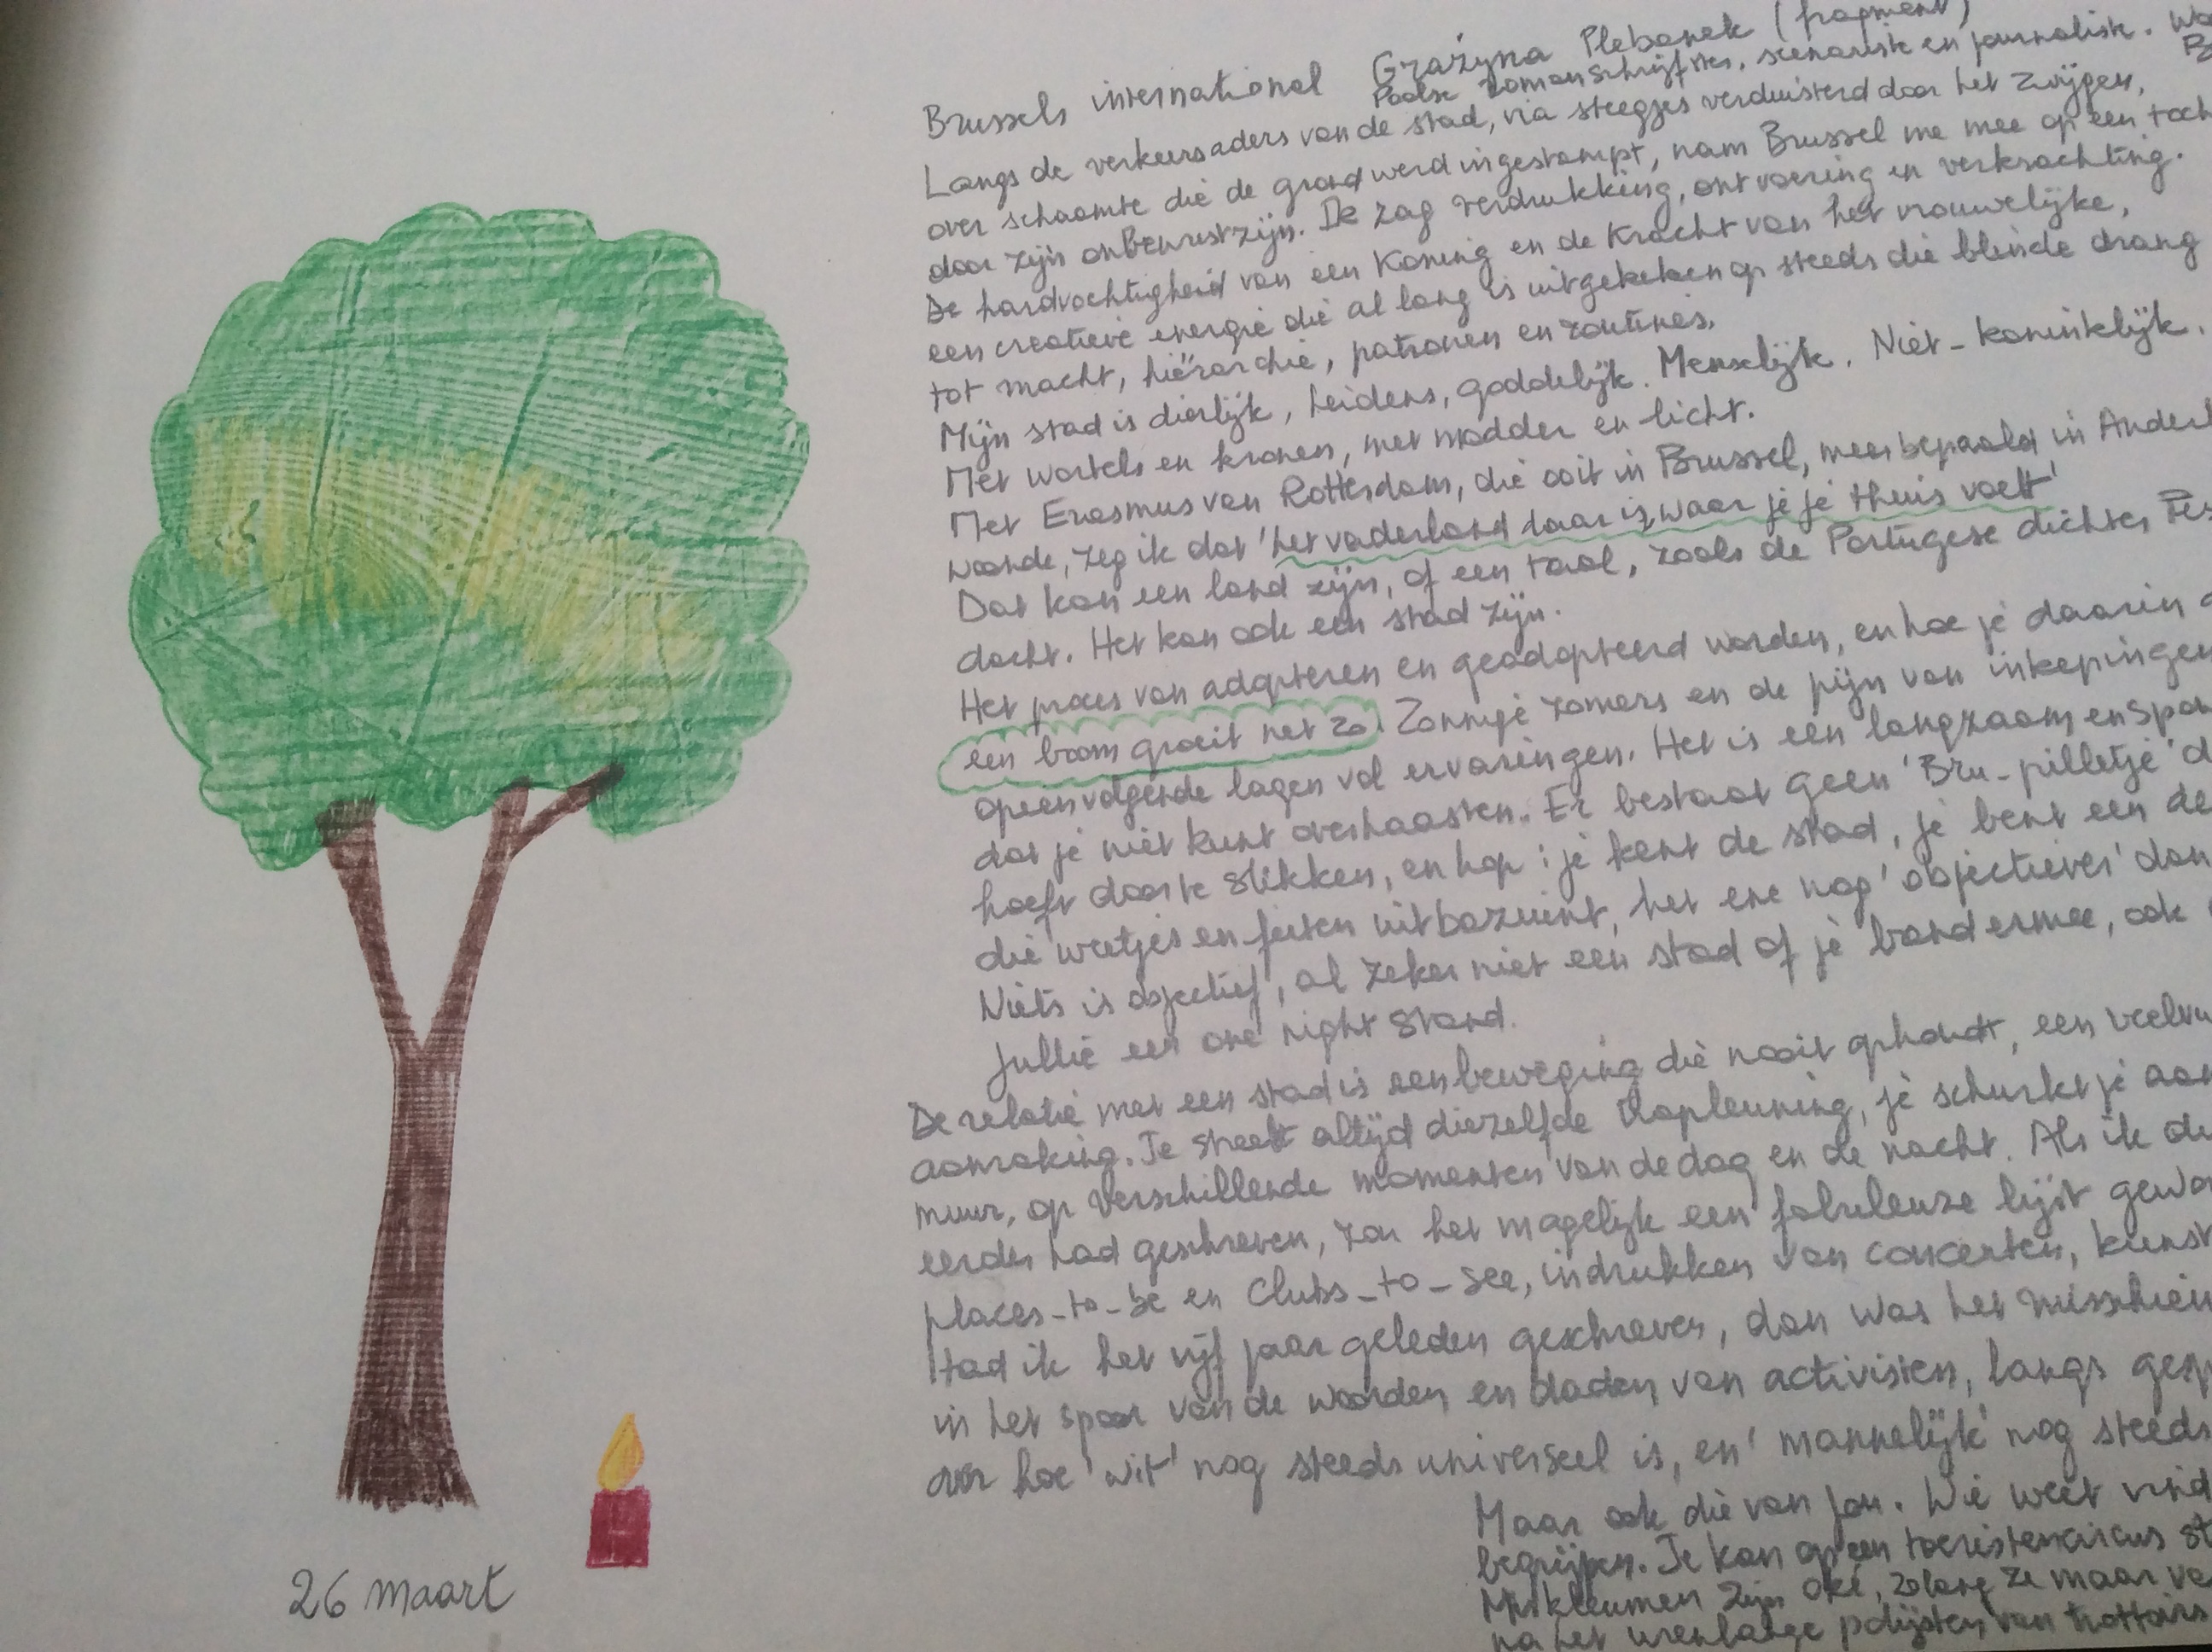 Brussels international Grażyna Plebanek (fragment)
Poolse romanschrijfster, scenariste en journaliste.
Langs de verkeersaders van de stad, via steegjes verduisterd door het zwijgen,
over schaamte die de grond werd ingestampt, nam Brussel me mee op een tocht
door zijn onbewustzijn. Ik zag verdrukking, ontvoering en verkrachting.
De hardvochtigheid van een Koning en de kracht van het vrouwelijke,
een creatieve energie die al lang is uitgekeken op steeds die blinde drang
tot macht, hiërarchie, patronen en routines.
Mijn stad is dierlijk, heidens, goddelijk. Menselijk. Niet-koninklijk.
Met wortels en kronen, met modder en licht.
Met Erasmus van Rotterdam, die ooit in Brussel, meer bepaald in Anderl
woonde, zeg ik dat 'het vaderland daar is, waar je je thuis voelt'
Dat kan een land zijn, of een taal, zoals de Portugese dichter Pes
dacht. Het kan ook een stad zijn.
Het proces van adopteren en geadopteerd worden, en hoe je daarin
een boom groeit net zo. Zonnige zomers en de pijn van inkepingen
opeenvolgende lagen vol ervaringen. Het is een langzaam en
dat je niet kunt overhaasten. Er bestaat geen 'Bru-pilletje' d
hoeft door te slikken, en hop: je kent de stad, je bent een de
die weetjes en feiten uitbazuint, het ene nog 'objectiever' dan
Niets is objectief, al zeker niet een stad of je band ermee, ook
jullie een one night stand.
De relatie met een stad is een beweging die nooit ophoudt, een veelvu
aanraking. Je streelt altijd diezelfde trapleuning, je schurkt je aan
muur, op verschillende momenten van de dag en de nacht. Als ik di
eerder had geschreven, zou het mogelijk een fabuleuze lijst gewo
places-to-be en clubs-to-see, indrukken van concerten, kunst
Had ik het vijf jaar geleden geschreven, dan was het misschien
in het spoor van de woorden en daden van activisten, langs gesp
over hoe 'wit' nog steeds universeel is, en 'mannelijk' nog steeds
Maar ook die van jou. Wie weet vind
begrijpen. Je kan op een toeristencircus st
Miskleumen zijn oké, zolang ze maar ve
na het urenlange polijsten van trottoirs
26 maart